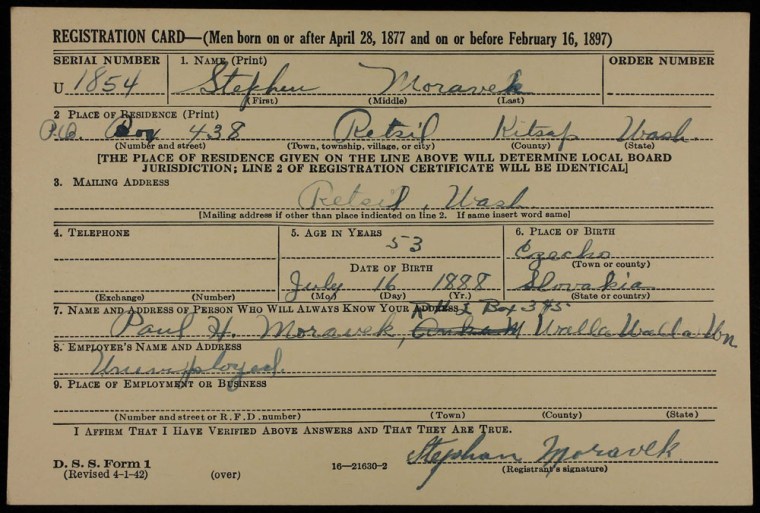 REGISTRATION CARD—(Men born on or after April 28, 1877 and on or before February 16, 1897)
SERIAL NUMBER 1. NAME (Print) ORDER NUMBER
U 1854 Stephen Moravek
(First) (Middle) (Last)
2 PLACE OF RESIDENCE (Print)
P.O. Box 438 Retsil Kitsap Wash.
(Number and street) (Town, township, village, or city) (County) (State)
[THE PLACE OF RESIDENCE GIVEN ON THE LINE ABOVE WILL DETERMINE LOCAL BOARD
JURISDICTION; LINE 2 OF REGISTRATION CERTIFICATE WILL BE IDENTICAL]
3. MAILING ADDRESS
Retsil, Wash.
[Mailing address if other than place indicated on line 2. If same insert word same]
4. TELEPHONE 5. AGE IN YEARS 6. PLACE OF BIRTH
53 Czecho
(Town or county)
DATE OF BIRTH
July 16 1888 Slovakia
(Exchange) (Number) (Mo.) (Day) (Yr.) (State or country)
7. NAME AND ADDRESS OF PERSON WHO WILL ALWAYS KNOW YOUR ADDRESS Box 345
Paul H. Moravek, Walla Walla Wn
8. EMPLOYER'S NAME AND ADDRESS
Unemployed.
9. PLACE OF EMPLOYMENT OR BUSINESS
(Number and street or R. F. D. number) (Town) (County) (State)
I AFFIRM THAT I HAVE VERIFIED ABOVE ANSWERS AND THAT THEY ARE TRUE.
Stephan Moravek
D. S. S. Form 1 16—21630-2 (Registrant's signature)
(Revised 4-1-42) (over)